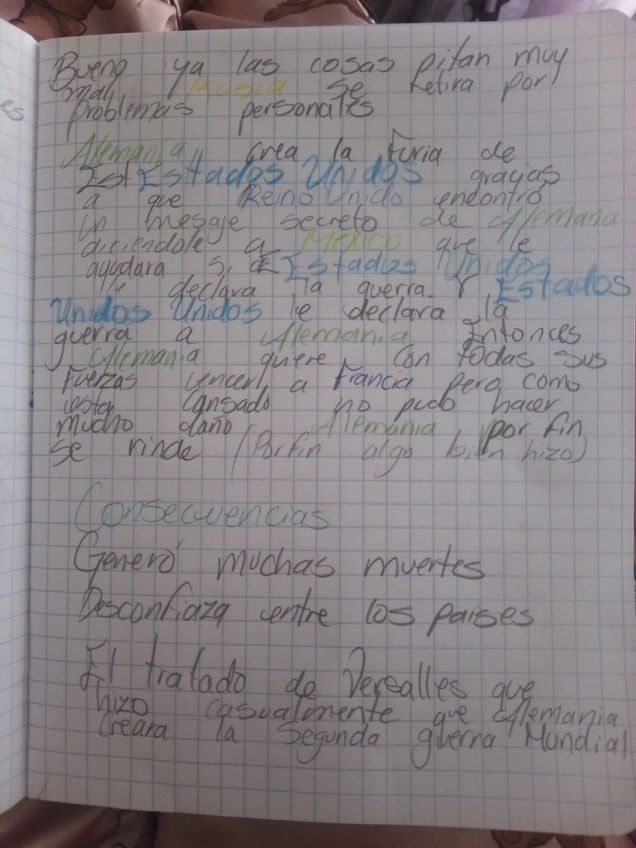 Bueno ya las cosas pitan muy
mal, Rusia se retira por
problemas personales
Alemania crea la Furia de
Estados Unidos gracias
a que Reino Unido encontró
un mesaje secreto de Alemana
diciendole a México que le
ayudara si Estados Unidos
declara la guerra. Y Estados
Unidos Unidos le declara la
guerra a Alemania Entonces
Alemania quiere con todas sus
Fuerzas vencer a Francia pero como
esta cansado no pudo hacer
mucho daño Alemania por fin
se rinde (Por fin algo bien hizo)
Consecuencias
Generó muchas muertes
Desconfiaza entre los paises
El tratado de Versalles que
hizo casualmente que Alemania
Creara la Segunda guerra Mundial